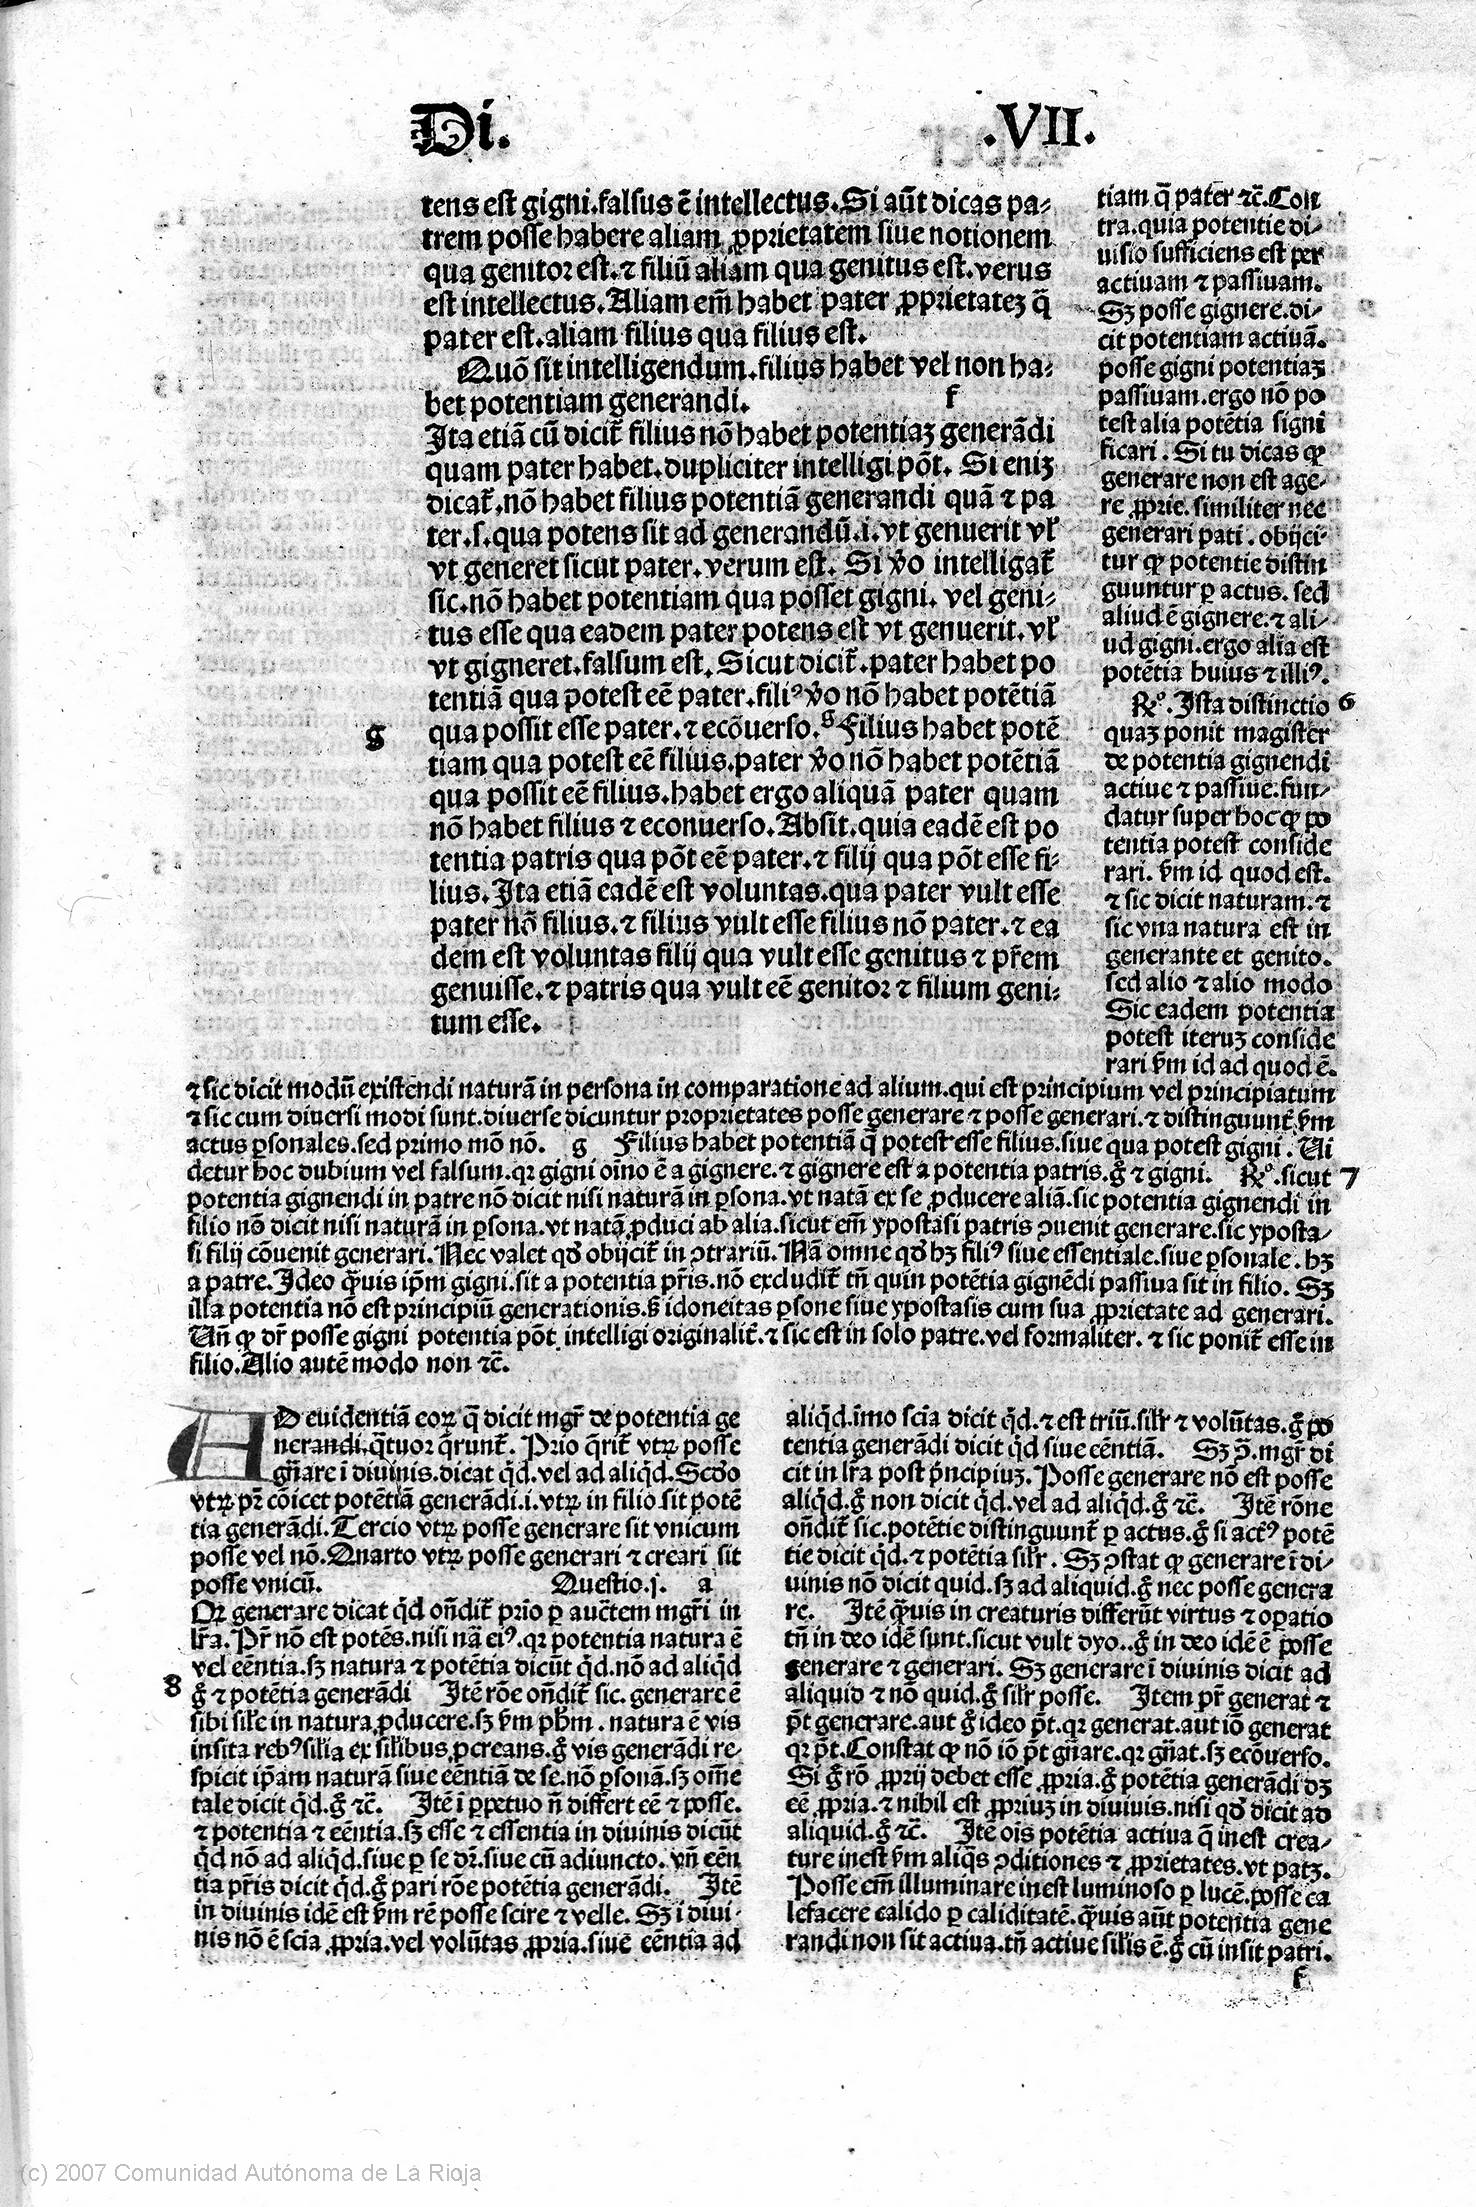 Di. .VII.
tens est gigni.falsus ē intellectus.Si aūt dicas pa⸗
trem posse habere aliam ꝓprietatem siue notionem
qua genitor est.⁊ filiū aliam qua genitus est.verus
est intellectus.Aliam em̄ habet pater ꝓprietateꝫ q̄
pater est.aliam filius qua filius est.
Quō sit intelligendum.filius habet vel non ha⸗
bet potentiam generandi. f
Ita etiā cū dicit̄ filius nō habet potentiaꝫ generādi
quam pater habet.dupliciter intelligi pōt. Si eniꝫ
dicat̄.nō habet filius potentiā generandi quā ⁊ pa
ter.s.qua potens sit ad generandū.i.vt genuerit vl̄
vt generet sicut pater.verum est. Si v̄o intelligat̄
sic.nō habet potentiam qua posset gigni. vel geni⸗
tus esse qua eadem pater potens est vt genuerit.vl̄
vt gigneret.falsum est. Sicut dicit̄.pater habet po
tentiā qua potest eē pater.filiꝰ v̄o nō habet potētiā
qua possit esse pater.⁊ ecōuerso. g Filius habet potē
g
tiam qua potest eē filius.pater v̄o nō habet potētiā
qua possit eē filius.habet ergo aliquā pater quam
nō habet filius ⁊ econuerso.Absit.quia eadē est po
tentia patris qua pōt eē pater.⁊ filij qua pōt esse fi⸗
lius. Ita etiā eadē est voluntas.qua pater vult esse
pater nō filius.⁊ filius vult esse filius nō pater.⁊ ea
dem est voluntas filij qua vult esse genitus ⁊ pr̄em
genuisse.⁊ patris qua vult eē genitor ⁊ filium geni⸗
tum esse.
tiam q̄ pater ⁊c̄.Con
tra.quia potentie di⸗
uisio sufficiens est per
actiuam ⁊ passiuam.
Sꝫ posse gignere.di⸗
cit potentiam actiuā.
posse gigni potentiaꝫ
passiuam.ergo nō po
test alia potētia signi
ficari. Si tu dicas ꝙ
generare non est age⸗
re ꝓprie.similiter nec
generari pati. obijci⸗
tur ꝙ potentie distin
guuntur ꝑ actus. sed
aliud ē gignere.⁊ ali⸗
ud gigni.ergo alia est
potētia huius ⁊ illiꝰ.
R̄º. Ista distinctio 6
quaꝫ ponit magister
de potentia gignendi
actiue ⁊ passiue:fun⸗
datur super hoc ꝙ po
tentia potest conside
rari. ẜm id quod est.
⁊ sic dicit naturam.⁊
sic vna natura est in
generante et genito.
sed alio ⁊ alio modo
Sic eadem potentia
potest iteruꝫ conside
rari ẜm id ad quod ē.
⁊ sic dicit modū existendi naturā in persona in comparatione ad alium.qui est principium vel principiatum
⁊ sic cum diuersi modi sunt.diuerse dicuntur proprietates posse generare ⁊ posse generari.⁊ distinguunt̄ ẜm
actus ꝑsonales.sed primo mō nō. g Filius habet potentiā q̄ potest esse filius.siue qua potest gigni. Ui
detur hoc dubium vel falsum.qꝛ gigni oīno ē a gignere.⁊ gignere est a potentia patris.g̊ ⁊ gigni. R̄º.sicut 7
potentia gignendi in patre nō dicit nisi naturā in ꝑsona.vt natā ex se ꝓducere aliā.sic potentia gignendi in
filio nō dicit nisi naturā in ꝑsona.vt natā ꝓduci ab alia.sicut em̄ ypostasi patris ꝯuenit generare.sic yposta⸗
si filij cōuenit generari.Nec valet qd̓ obijcit̄ in ꝯtrariū.Nā omne qd̓ hꝫ filiꝰ siue essentiale.siue ꝑsonale.hꝫ
a patre.Ideo q̄uis ip̄m gigni.sit a potentia pr̄is.nō excludit̄ tn̄ quin potētia gignēdi passiua sit in filio. Sꝫ
illa potentia nō est principiū generationis.ꝫ idoneitas ꝑsone siue ypostasis cum sua ꝓprietate ad generari.
Un̄ ꝙ dr̄ posse gigni potentia pōt intelligi originalit̄.⁊ sic est in solo patre.vel formaliter. ⁊ sic ponit̄ esse in
filio.Alio autē modo non ⁊c̄.
AD euidentiā eoꝝ q̄ dicit mgr̄ de potentia ge
nerandi.q̄tuor q̄runt̄. Prīo q̄rit̄ vtꝝ posse
gn̄are ī diuinis.dicat qͥd.vel ad aliqͥd.Scd̓o
vtꝝ pr̄ cōicet potētiā generādi.i.vtꝝ in filio sit potē
tia generādi.Tercio vtꝝ posse generare sit vnicum
posse vel nō.Quarto vtꝝ posse generari ⁊ creari sit
posse vnicū. Questio.j. a
Qꝛ generare dicat qͥd on̄dit̄ prīo ꝑ auctem mgr̄i in
lr̄a.Pr̄ nō est potēs.nisi nā eiꝰ.qꝛ potentia natura ē
vel eēntia.sꝫ natura ⁊ potētia dicūt qͥd.nō ad aliqͥd
8
g̊ ⁊ potētia generādi Itē rōe on̄dit̄ sic. generare ē
sibi sil̄e in natura ꝓducere.sꝫ ẜm ph̄m. natura ē vis
insita rebꝰ sil̄ia ex sil̄ibus ꝓcreans.g̊ vis generādi re⸗
spicit ip̄am naturā siue eēntiā de se.nō ꝑsonā.sꝫ om̄e
tale dicit qͥd.g̊ ⁊c̄. Itē ī ꝑpetuo n̄ differt eē ⁊ posse.
⁊ potentia ⁊ eēntia.sꝫ esse ⁊ essentia in diuinis dicūt
qͥd nō ad aliqͥd.siue ꝑ se dr̄.siue cū adiuncto. vn̄ eēn
tia pr̄is dicit qͥd.g̊ pari rōe potētia generādi. Itē
in diuinis idē est ẜm rē posse scire ⁊ velle. Sꝫ ī diui⸗
nis nō ē scīa ꝓpria.vel volūtas ꝓpria.siue eēntia ad
aliqͥd.īmo scīa dicit qͥd.⁊ est triū.sil̄r ⁊ volūtas.g̊ po
tentia generādi dicit qͥd siue eēntiā. Sꝫ ꝯ̄.mgr̄ di
cit in lr̄a post p̄ncipiuꝫ.Posse generare nō est posse
aliqͥd.g̊ non dicit qͥd.vel ad aliqͥd.g̊ ⁊c̄. Itē rōne
on̄dit̄ sic.potētie distinguunt̄ ꝑ actus.g̊ si actꝰ potē
tie dicit qͥd.⁊ potētia sil̄r. Sꝫ ꝯstat ꝙ generare ī di⸗
uinis nō dicit quid.sꝫ ad aliquid.g̊ nec posse genera
re. Itē q̄uis in creaturis differūt virtus ⁊ oꝑatio
tn̄ in deo idē sunt.sicut vult dyo..g̊ in deo idē ē posse
generare ⁊ generari. Sꝫ generare ī diuinis dicit ad
aliquid ⁊ nō quid.g̊ sil̄r posse. Item pr̄ generat ⁊
p̄t generare.aut g̊ ideo p̄t.qꝛ generat.aut iō generat
qꝛ p̄t.Constat ꝙ nō iō p̄t gn̄are.qꝛ gn̄at.sꝫ ecōuerso.
Si g̊ rō ꝓprij debet esse ꝓpria.g̊ potētia generādi dꝫ
eē ꝓpria.⁊ nihil est ꝓpriuꝫ in diuinis.nisi qd̓ dicit ad
aliquid.g̊ ⁊c̄. Itē oīs potētia actiua q̄ inest crea⸗
ture inest ẜm aliqͣs ꝯditiones ⁊ ꝓprietates.vt patꝫ.
Posse em̄ illuminare inest luminoso ꝑ lucē.posse ca
lefacere calido ꝑ caliditatē.q̄uis aūt potentia gene
randi non sit actiua.tn̄ actiue sil̄is ē.g̊ cū insit patri.
f
(c) 2007 Comunidad Autónoma de La Rioja